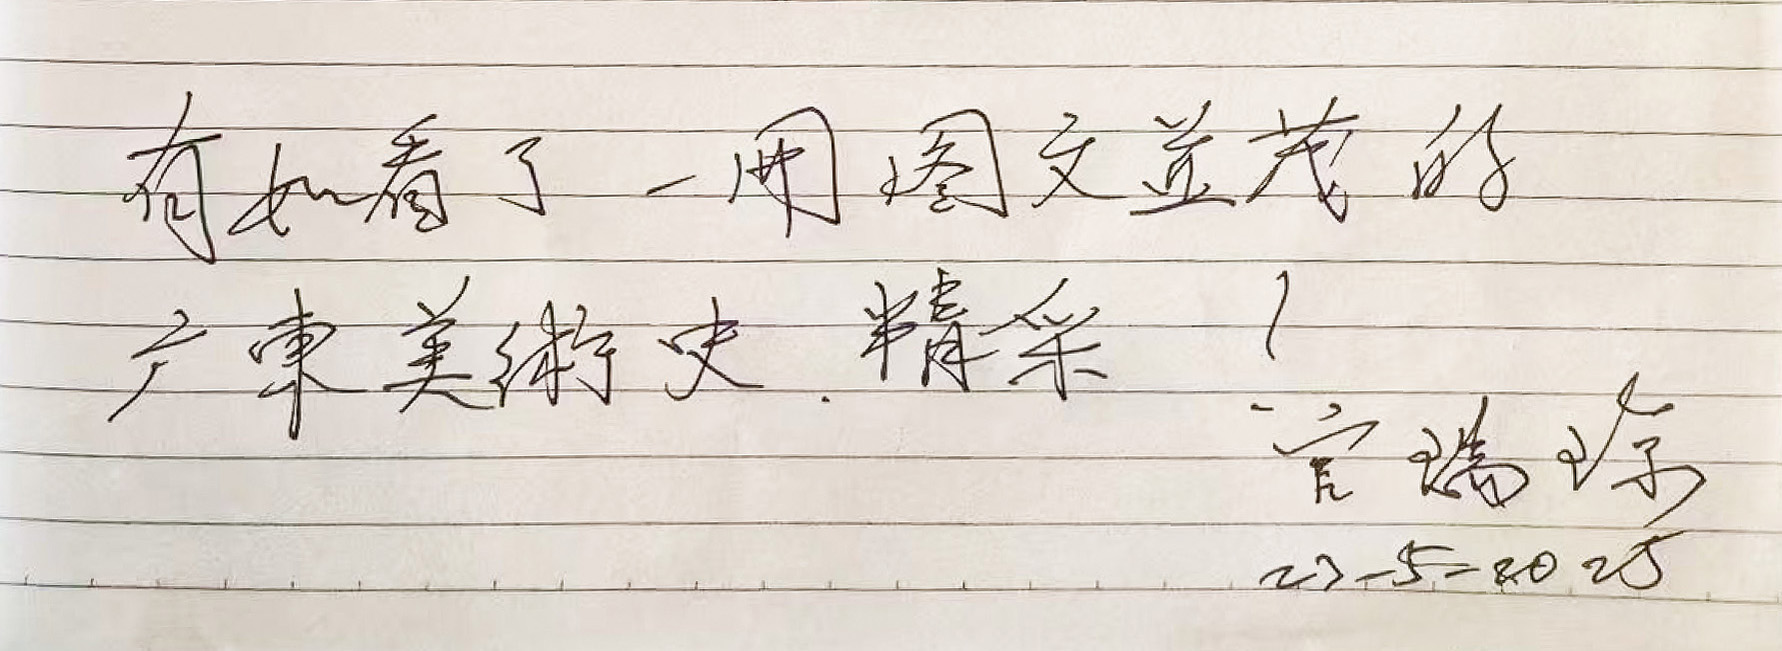 有如看了一冊图文並茂的
广東美術史.精采!
官瑞
23-5-2025